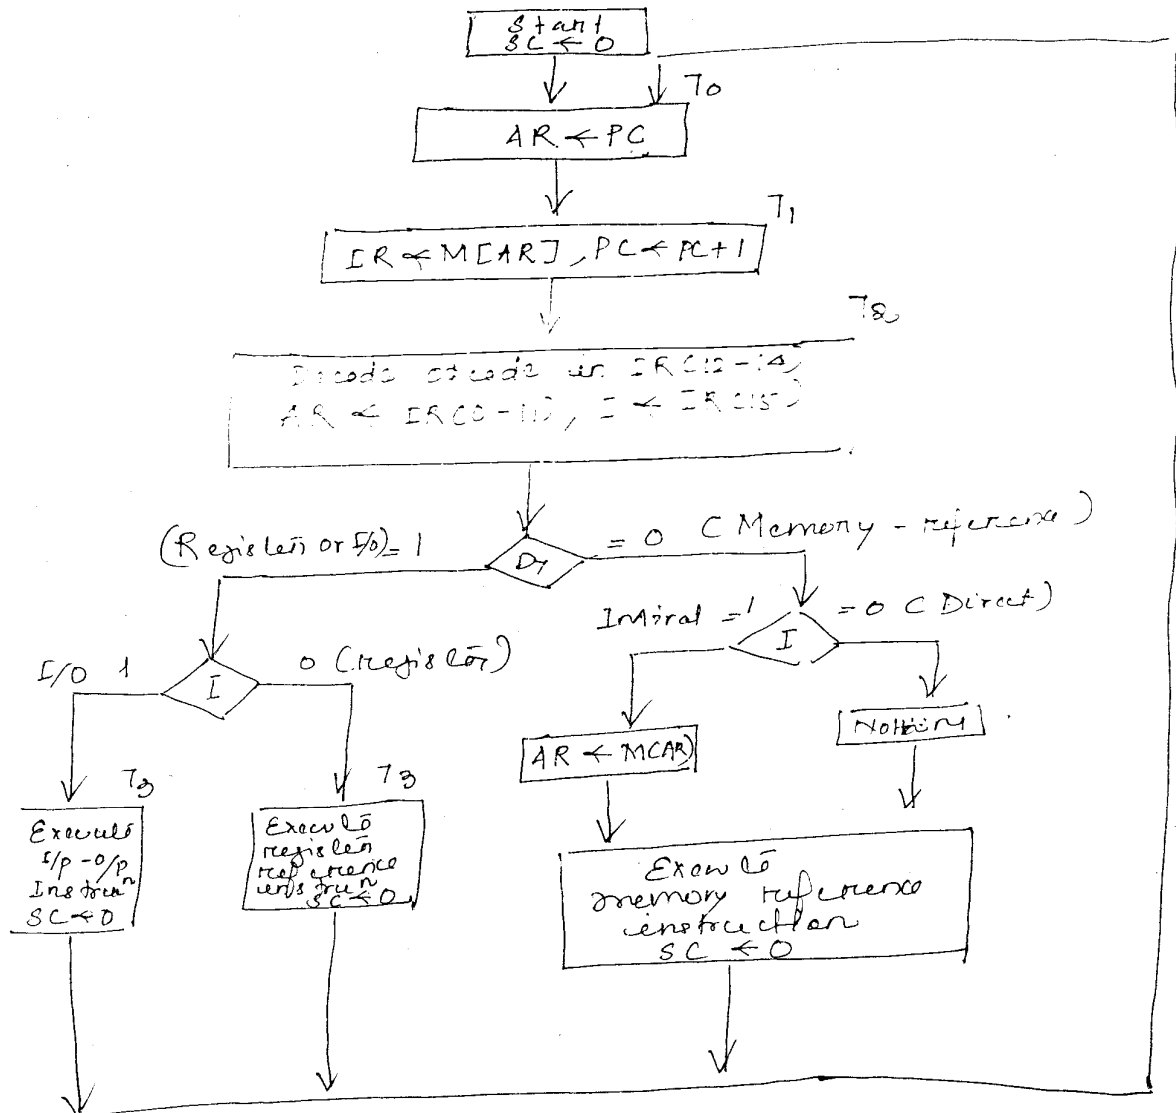 Start
SC ← 0
T0
AR ← PC
T1
IR ← M[AR], PC ← PC+1
T2
Decode opcode in IR(12-14)
AR ← IR(0-11), I ← IR(15)
(Register or I/O) = 1
D7
= 0 (Memory - reference)
Indirect = 1
I
= 0 (Direct)
I/O 1
I
0 (register)
AR ← M(AR)
Nothing
T3
T3
Execute
I/p - O/p
Instruⁿ
SC ← 0
Execute
register
reference
instruⁿ
SC ← 0
Execute
memory reference
instruction
SC ← 0